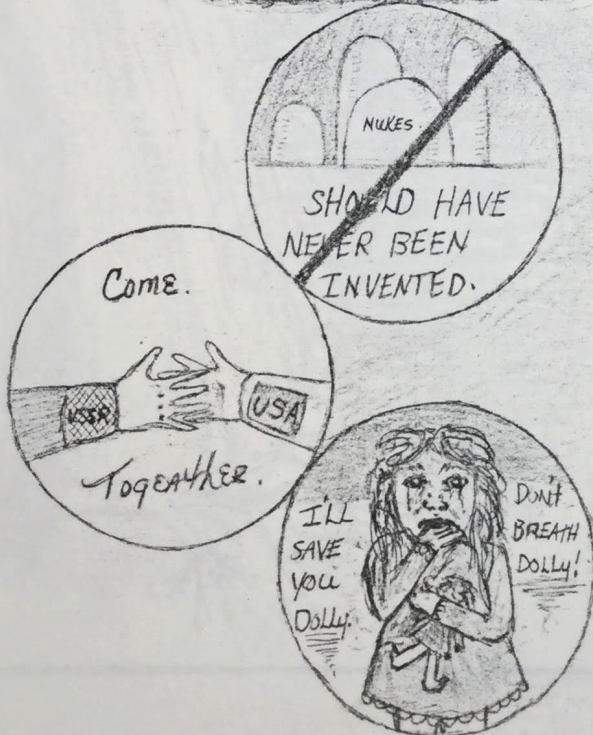 NUKES.
SHOULD HAVE
NEVER BEEN
INVENTED.
COME.
USSR
USA
TOGEATHER.
I'LL
SAVE
YOU
DOLLY.
DON'T
BREATH
DOLLY!